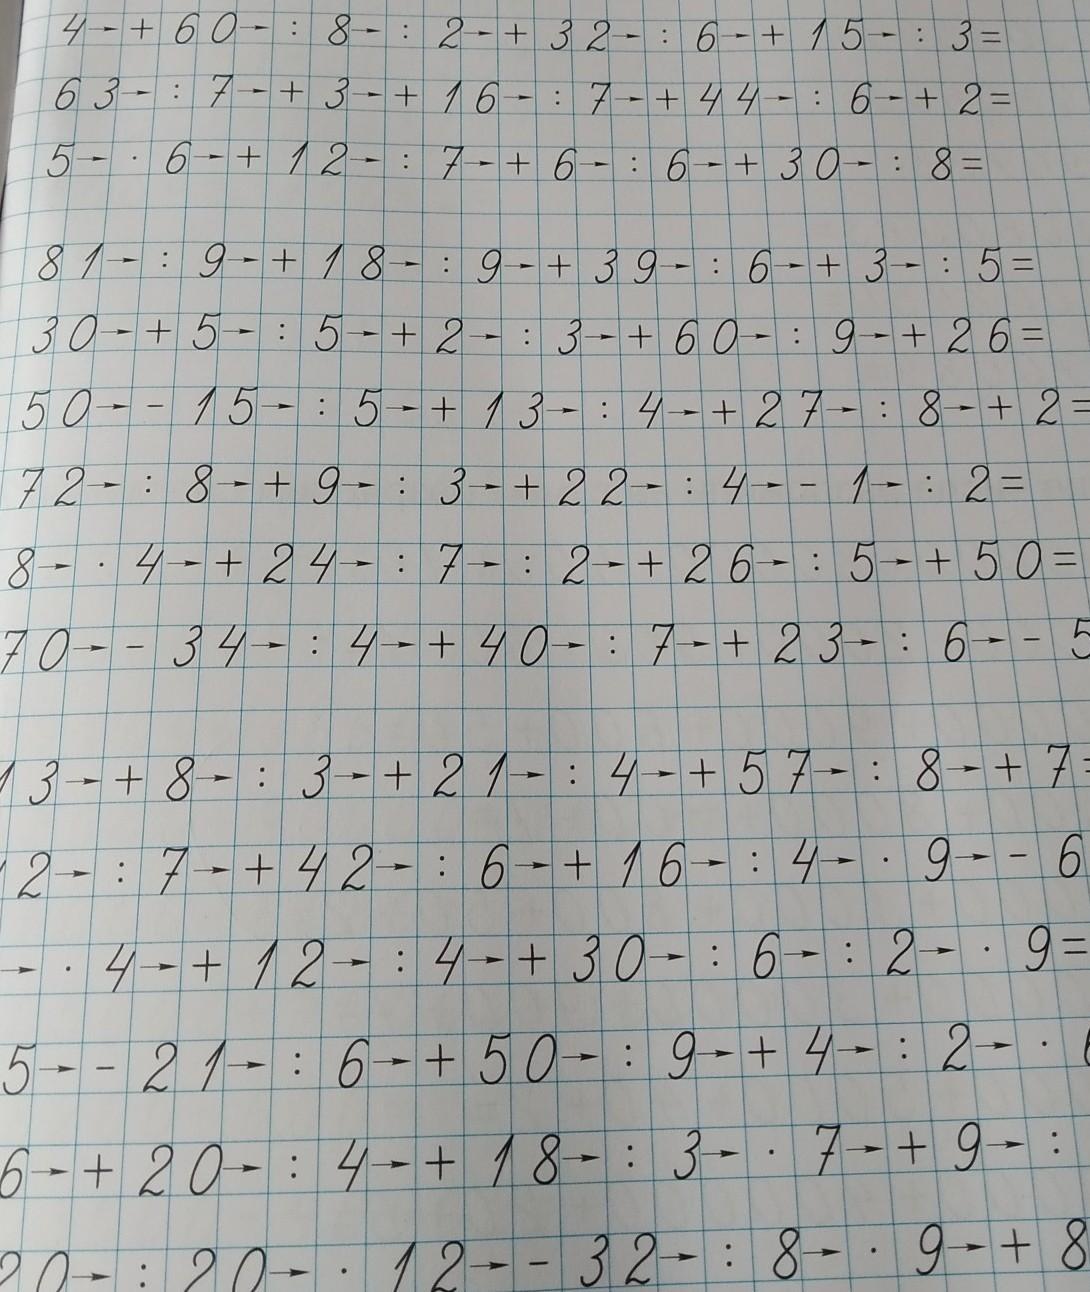 4→+60→:8→:2→+32→:6→+15→:3=
63→:7→+3→+16→:7→+44→:6→+2=
5→·6→+12→:7→+6→:6→+30→:8=
81→:9→+18→:9→+39→:6→+3→:5=
30→+5→:5→+2→:3→+60→:9→+26=
50→-15→:5→+13→:4→+27→:8→+2=
72→:8→+9→:3→+22→:4→-1→:2=
8→·4→+24→:7→:2→+26→:5→+50=
70→-34→:4→+40→:7→+23→:6→-5
13→+8→:3→+21→:4→+57→:8→+7=
2→:7→+42→:6→+16→:4→·9→-6
→·4→+12→:4→+30→:6→:2→·9=
5→-21→:6→+50→:9→+4→:2→·
6→+20→:4→+18→:3→·7→+9→:
20→:20→·12→-32→:8→·9→+8